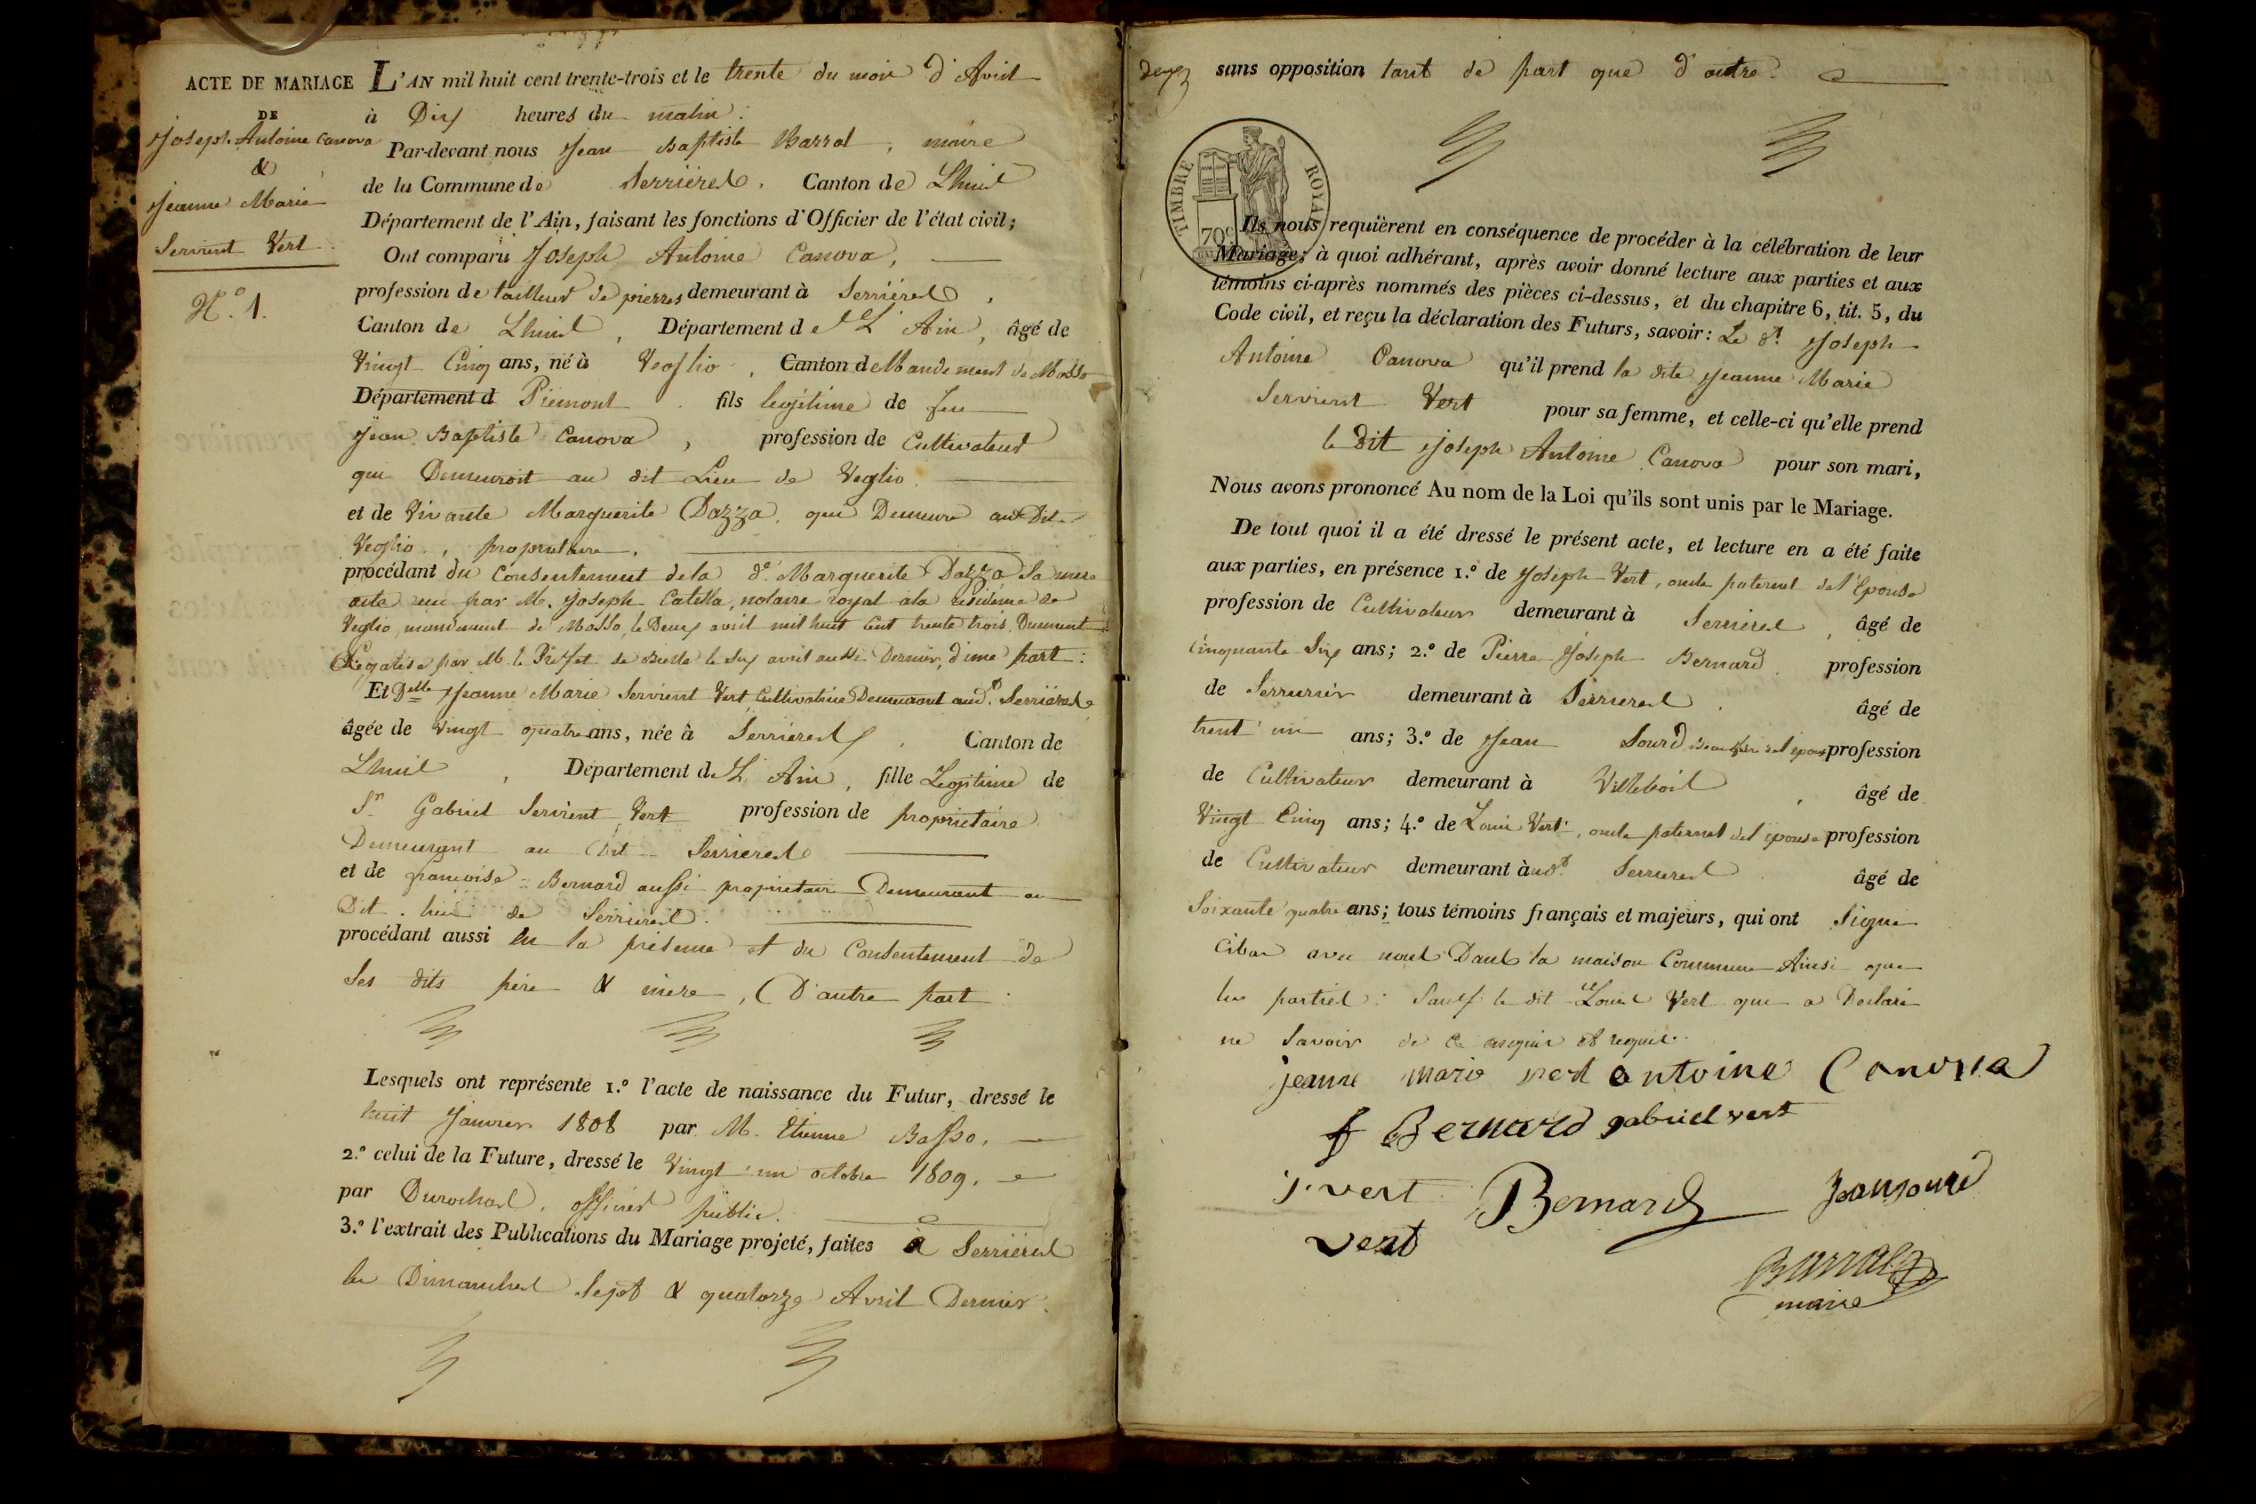 ACTE DE MARIAGE
DE
Joseph Antoine Canova
&
Jeanne Marie
Servient Vert
N.º 1.
L'AN mil huit cent trente-trois et le trente du mois d'Avril
à Dix heures du matin.
Par-devant nous Jean Baptiste Barral, maire
de la Commune de Serrières, Canton de Lhuis
Département de l'Ain, faisant les fonctions d'Officier de l'état civil;
Ont comparu Joseph Antoine Canova,
profession de tailleur de pierres demeurant à Serrières,
Canton de Lhuis, Département de L'Ain, âgé de
Vingt Cinq ans, né à Veglio, Canton de Mandement de Mosso
Département d Piemont fils legitime de feu
Jean Baptiste Canova, profession de Cultivateur
qui Demeuroit au dit Lieu de Veglio
et de Vivante Marguerite Dazza, qui Demeure au Dit
Veglio, propriétaire,
procédant du Consentement de la de. Marguerite Dazza Sa mere
acte reçu par M. Joseph Catella, notaire royal à la résidence de
Veglio, mandement de Mosso, le Deux avril mil huit Cent trente trois, Dument
Légalisé par M. le Préfet de Bielle le Six avril aussi Dernier, d'une part:
Et Delle Jeanne Marie Servient Vert Cultivatrice Demeurant aud.t Serrières
âgée de Vingt quatre ans, née à Serrières, Canton de
Lhuis, Département de L'Ain, fille Legitime de
Sr Gabriel Servient Vert profession de propriétaire
Demeurant au Dit Serrieres
et de françoise Bernard aussi propriétaire Demeurant au
Dit lieu de Serrieres.
procédant aussi En la présence et du Consentement de
Ses dits père & mère, D'autre part:
Lesquels ont représenté 1.º l'acte de naissance du Futur, dressé le
huit Janvier 1808 par M. Etienne Basso,
2.º celui de la Future, dressé le Vingt un octobre 1809.
par Durochat, officier public.
3.º l'extrait des Publications du Mariage projeté, faites à Serrières
les Dimanches Sept & quatorze Avril Dernier.
sans opposition tant de part que d'autre.
TIMBRE ROYAL
70c
Ils nous requièrent en conséquence de procéder à la célébration de leur
Mariage; à quoi adhérant, après avoir donné lecture aux parties et aux
témoins ci-après nommés des pièces ci-dessus, et du chapitre 6, tit. 5, du
Code civil, et reçu la déclaration des Futurs, savoir: Le dt Joseph
Antoine Canova qu'il prend la dite Jeanne Marie
Servient Vert pour sa femme, et celle-ci qu'elle prend
le dit Joseph Antoine Canova pour son mari,
Nous avons prononcé Au nom de la Loi qu'ils sont unis par le Mariage.
De tout quoi il a été dressé le présent acte, et lecture en a été faite
aux parties, en présence 1.º de Joseph Vert, oncle paternel de l'Epouse
profession de Cultivateur demeurant à Serrieres, âgé de
Cinquante Six ans; 2.º de Pierre Joseph Bernard profession
de Serrurier demeurant à Serrieres, âgé de
trent'un ans; 3.º de Jean Sourd Beau frère de l'epoux profession
de Cultivateur demeurant à Villebois, âgé de
Vingt Cinq ans; 4.º de Louis Vert, oncle paternel de l'épouse profession
de Cultivateur demeurant à aud.t Serrieres âgé de
Soixante quatre ans; tous témoins français et majeurs, qui ont Signé
Cibas avec nous Dans la maison Commune Ainsi que
les parties: Sauf le dit Louis Vert qui a Declaré
ne Savoir de ce enquis et requis.
jeanne marie vert antoine Canova
f Bernard gabriel vert
j. vert Bernard Jean sourd
vert
Barral
maire